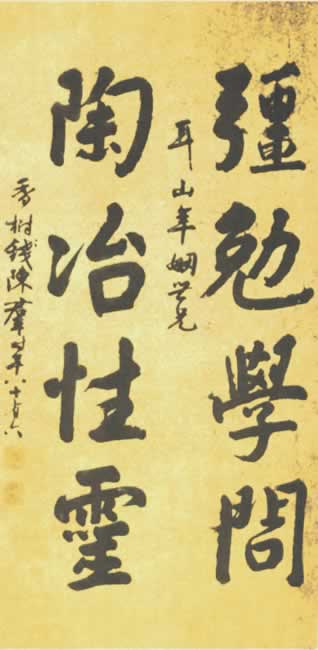 彊勉學問
耳山年姻世兄
陶冶性靈
香樹錢陳羣時年八十有六